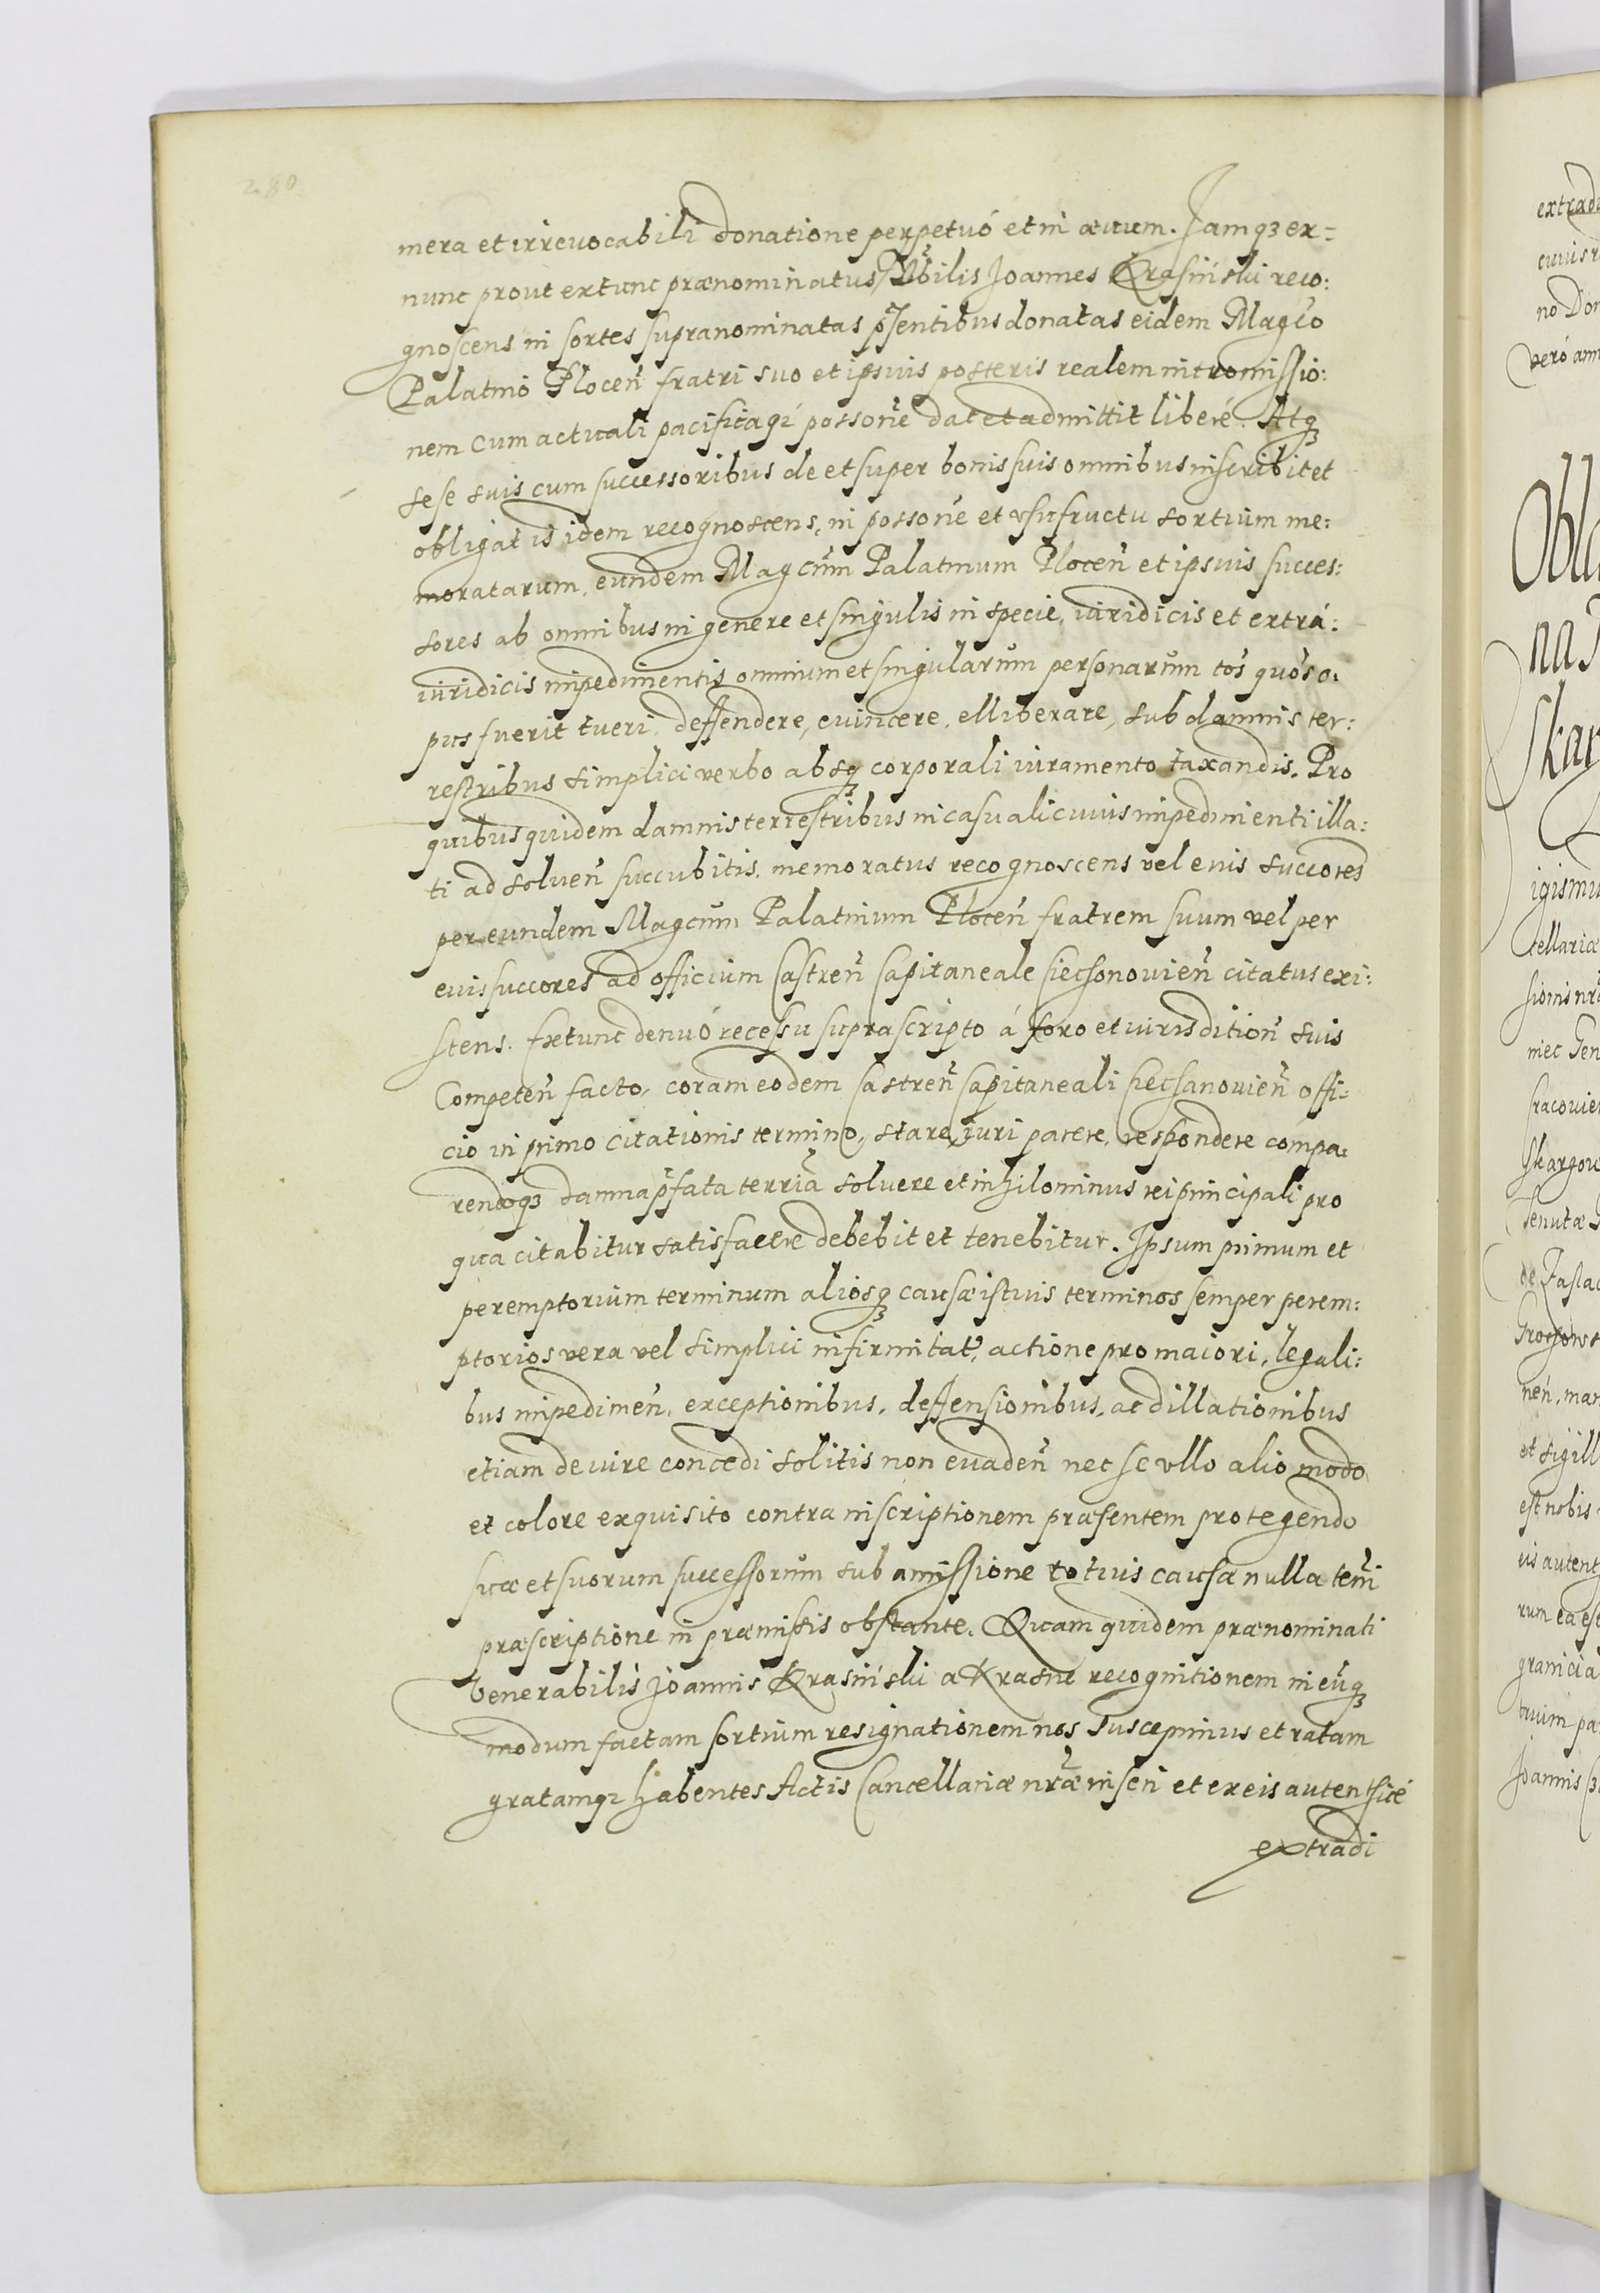 280
mera et irrevocabili donatione perpetuó et in ævum. Jamqȝ ex=
nunc prout extunc prænominatus Nobilis Joannes Krasiński reco:
gnoscens in sortes supranominatas pñtibus donatas eidem Magco
Palatino Plocen̄ fratri suo et ipsius posteris realem intromissio:
nem cum actuali pacificaqȝ possone dat et admittit liberé. Atqȝ
sese suis cum successoribus de et super bonis suis omnibus inscribit et
obligat is idem recognoscens, in possone et vsufructu sortium me:
moratarum, eundem Magcum Palatinum Plocen̄ et ipsius succes:
sores ab omnibus in genere et singulis in specie, iuridicis et extrá:
iuridicis impedimentis omnium et singularum personarum tos quos o:
pus fuerit tueri, deffendere, evincere, elliberare, sub damnis ter:
restribus simplici verbo absqȝ corporali iuramento taxandis. Pro
quibus quidem damnis terrestribus in casu alicuius impedimenti illa:
ti ad solven̄ succubitis, memoratus recognoscens vel eius succores
per eundem Magcum Palatinum Plocen̄ fratrem suum vel per
eius succores ad officium Castren̄ Capitaneale Ciechonovien̄ citatus exi:
stens. Extunc denuó recessu suprascripto á foro et iurisdition̄ suis
Competen̄ facto, coram eodem Castren̄ Capitaneali Ciechanovien̄ offi:
cio in primo citationis termino, stare, iuri parere, respondere compa:
rendoqȝ damna p̄fata terria soluere et nihilominus rei principali pro
qua citabitur satisfacere debebit et tenebitur. Ipsum primum et
peremptorium terminum aliosqȝ causæ istius terminos semper perem:
ptorios vera vel simplici infirmitate, actione pro maiori, legali:
bus impedimen̄, exceptionibus, deffensionibus, ac dillationibus
etiam de iure concedi solitis non evaden̄ nec se vllo alio modo
et colore exquisito contra inscriptionem præsentem protegendo
suæ et suorum successorum sub amissione totius causæ nulla terri
præscriptione in præmissis obstante. Quam quidem prænominati
Venerabilis Joannis Krasinski a Krasne recognitionem in eumqȝ
modum factam sortium resignationem nos suscepimus et ratam
gratamqȝ habentes Actis Cancellariæ nræ inseri et ex eis autenthicé
extradi